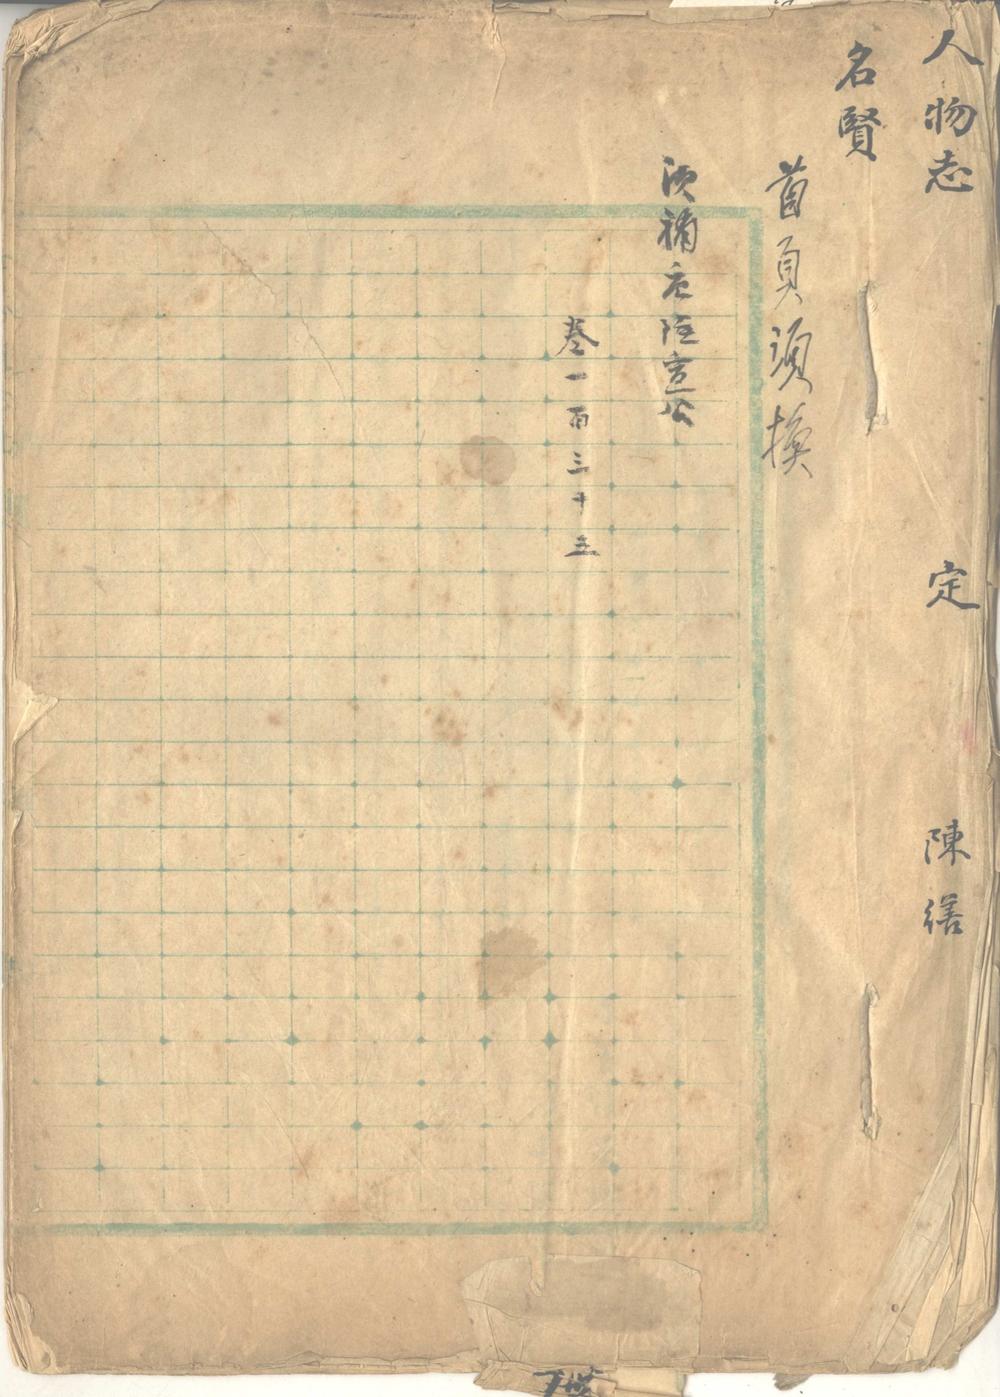 人物志 定 陳繕
名賢
首頁須換
須補唐陸宣公
卷一百三十五